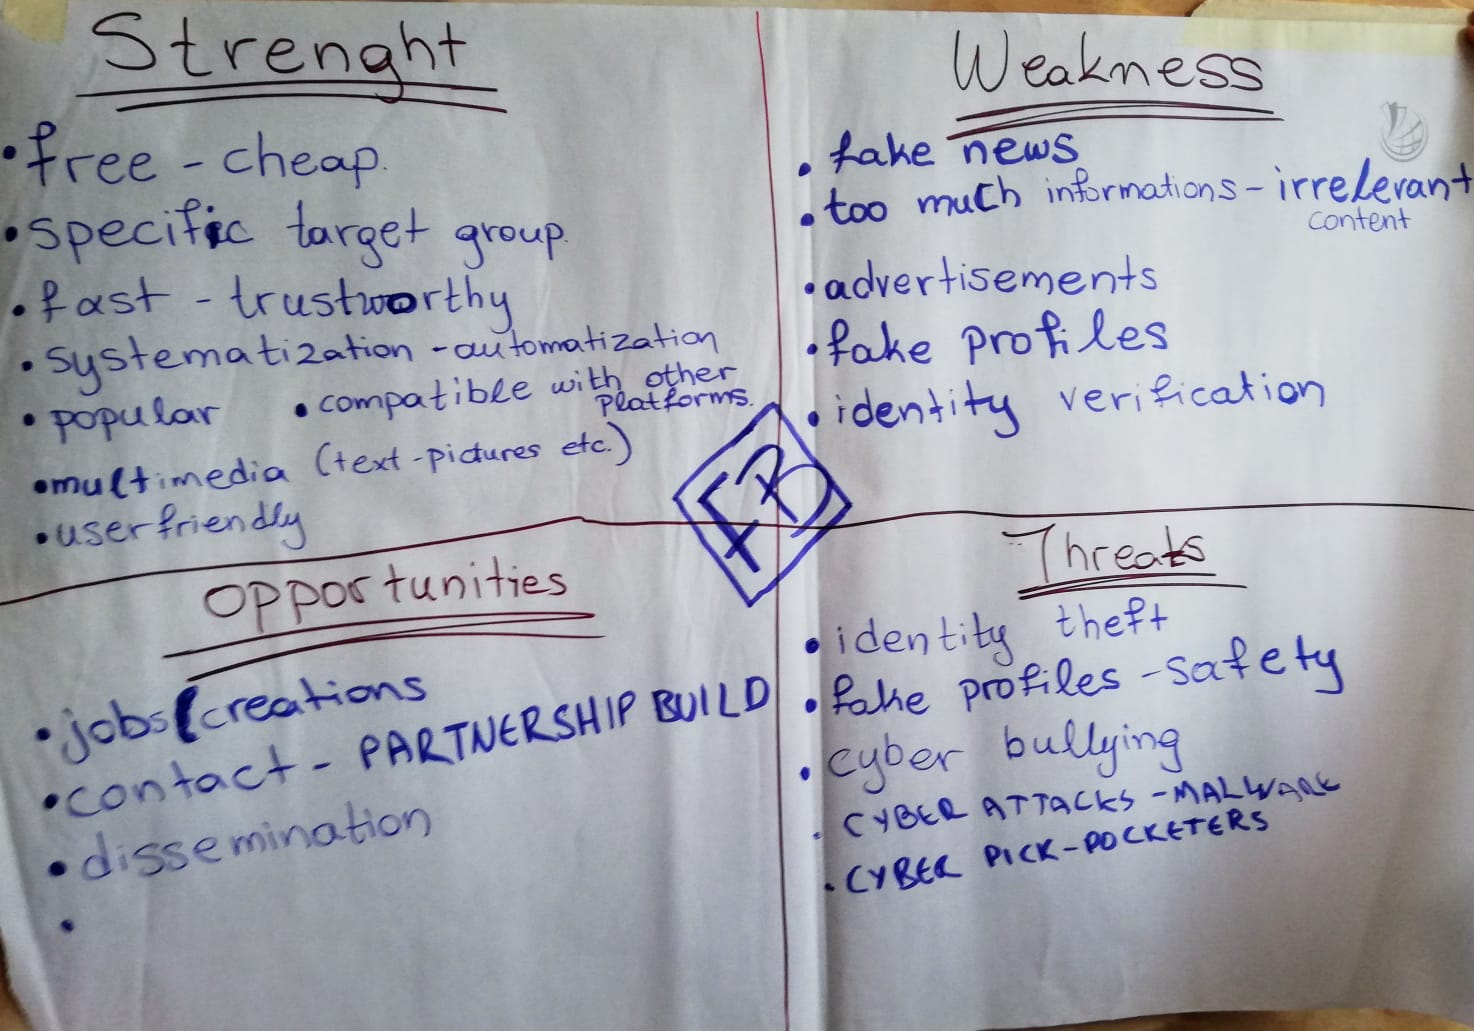 Strenght
• free - cheap.
• specific target group.
• fast - trustworthy
• systematization - automatization
• popular • compatible with other
platforms.
• multimedia (text - pictures etc.)
• userfriendly
Weakness
• fake news
• too much informations - irrelevant
content
• advertisements
• fake profiles
• identity verification
FB
Opportunities
• jobs (creations
• contact - PARTNERSHIP BUILD
• dissemination
•
Threats
• identity theft
• fake profiles - safety
• cyber bullying
• CYBER ATTACKS - MALWARE
• CYBER PICK-POCKETERS